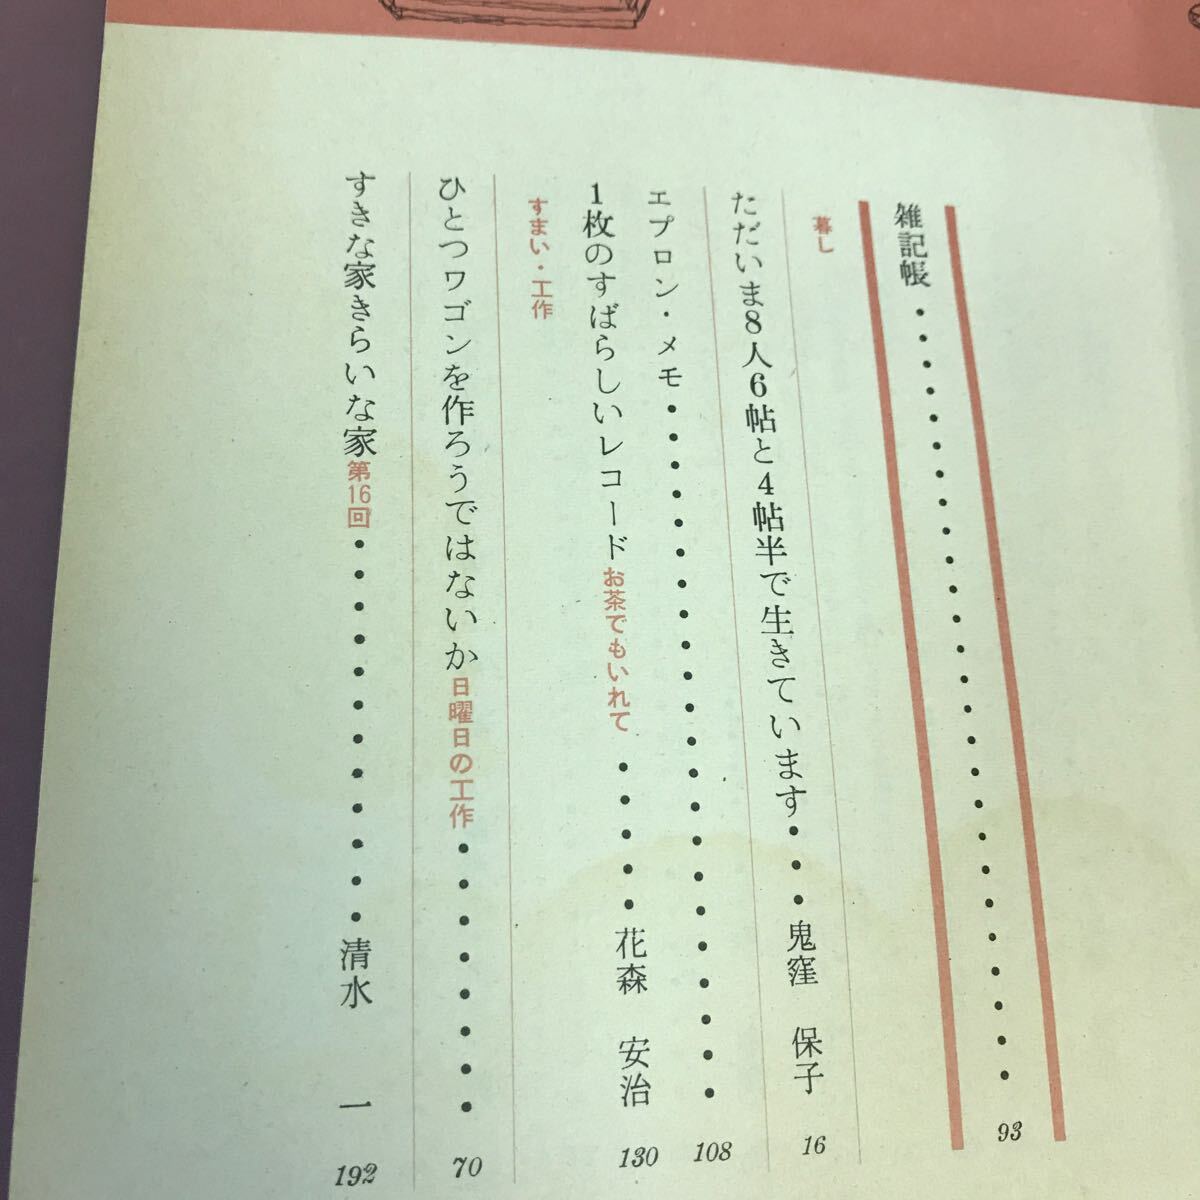 雑記帳・・・・・・・・・・・・・・・・・・・・・・・93
暮し
ただいま8人6帖と4帖半で生きています・・・鬼窪 保子 16
エプロン・メモ・・・・・・・・・・・・・・・・・・・・・・108
1枚のすばらしいレコード お茶でもいれて・・・・・花森 安治 130
すまい・工作
ひとつワゴンを作ろうではないか 日曜日の工作・・・・・・・・70
すきな家きらいな家 第16回・・・・・・・・・・・・清水 一 192